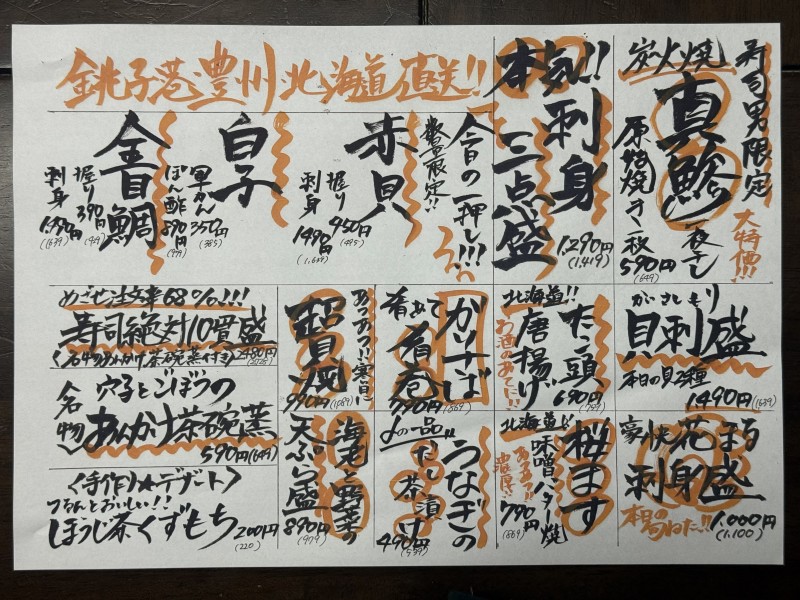 寿司男限定
炭火焼
真鯵の一夜干し
大特価!!!
原始焼き一枚
590円
(649)
本気!!
刺身三点盛
1.290円
(1,419)
銚子港豊洲北海道直送!!
今日の一押し!!!
数量限定!!
赤貝
握り 450円
(495)
刺身 1490円
(1,639)
白子
軍かん 350円
(385)
ぽん酢 890円
(979)
金目鯛
握り 390円
刺身
(1,639)
貝刺盛
本日の貝2種
1490円
(1,639)
北海道!!
たこ頭唐揚げ
お酒のあてに!!
690円
(759)
かりそば
790円
(869)
あつあつ!!
990円
(1,089)
めざせ注文率68%!!!
寿司絶対10貫盛
茶碗蒸付き
2480円
豪快花まる刺身盛
本日の
1.000円
(1,100)
北海道!!
桜ます味噌バター焼
濃厚!!
790円
(869)
〆の一品!!
うなぎのだし茶漬け
490円
(539)
海老と野菜の天ぷら盛
890円
(979)
名物
穴子とごぼうの
あんかけ茶碗蒸
590円
(649)
〈手作り デザート〉
つるんとおいしい!!
ほうじ茶くずもち
200円
(220)